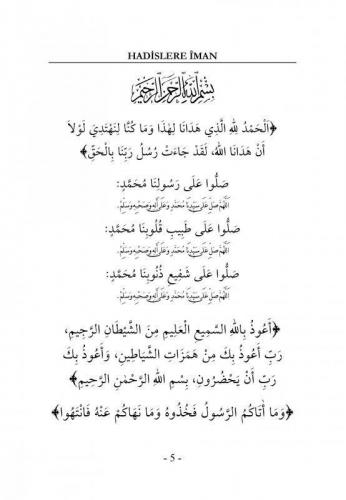 HADİSLERE ÎMAN
بِسْمِ اللهِ الرَّحْمٰنِ الرَّحِيمِ
﴿اَلْحَمْدُ لِلّٰهِ الَّذِي هَدَانَا لِهٰذَا وَمَا كُنَّا لِنَهْتَدِيَ لَوْلَا
أَنْ هَدَانَا اللهُ، لَقَدْ جَاءَتْ رُسُلُ رَبِّنَا بِالْحَقِّ﴾
صَلُّوا عَلَى رَسُولِنَا مُحَمَّدٍ:
اَللّٰهُمَّ صَلِّ عَلَى سَيِّدِنَا مُحَمَّدٍ وَعَلَى اٰلِهِ وَصَحْبِهِ وَسَلِّمْ.
صَلُّوا عَلَى طَبِيبِ قُلُوبِنَا مُحَمَّدٍ:
اَللّٰهُمَّ صَلِّ عَلَى سَيِّدِنَا مُحَمَّدٍ وَعَلَى اٰلِهِ وَصَحْبِهِ وَسَلِّمْ.
صَلُّوا عَلَى شَفِيعِ ذُنُوبِنَا مُحَمَّدٍ:
اَللّٰهُمَّ صَلِّ عَلَى سَيِّدِنَا مُحَمَّدٍ وَعَلَى اٰلِهِ وَصَحْبِهِ وَسَلِّمْ.
﴿أَعُوذُ بِاللهِ السَّمِيعِ الْعَلِيمِ مِنَ الشَّيْطَانِ الرَّجِيمِ،
رَبِّ أَعُوذُ بِكَ مِنْ هَمَزَاتِ الشَّيَاطِينِ، وَأَعُوذُ بِكَ
رَبِّ أَنْ يَحْضُرُونِ، بِسْمِ اللهِ الرَّحْمٰنِ الرَّحِيمِ﴾
﴿وَمَا اٰتَاكُمُ الرَّسُولُ فَخُذُوهُ وَمَا نَهَاكُمْ عَنْهُ فَانْتَهُوا﴾
- 5 -